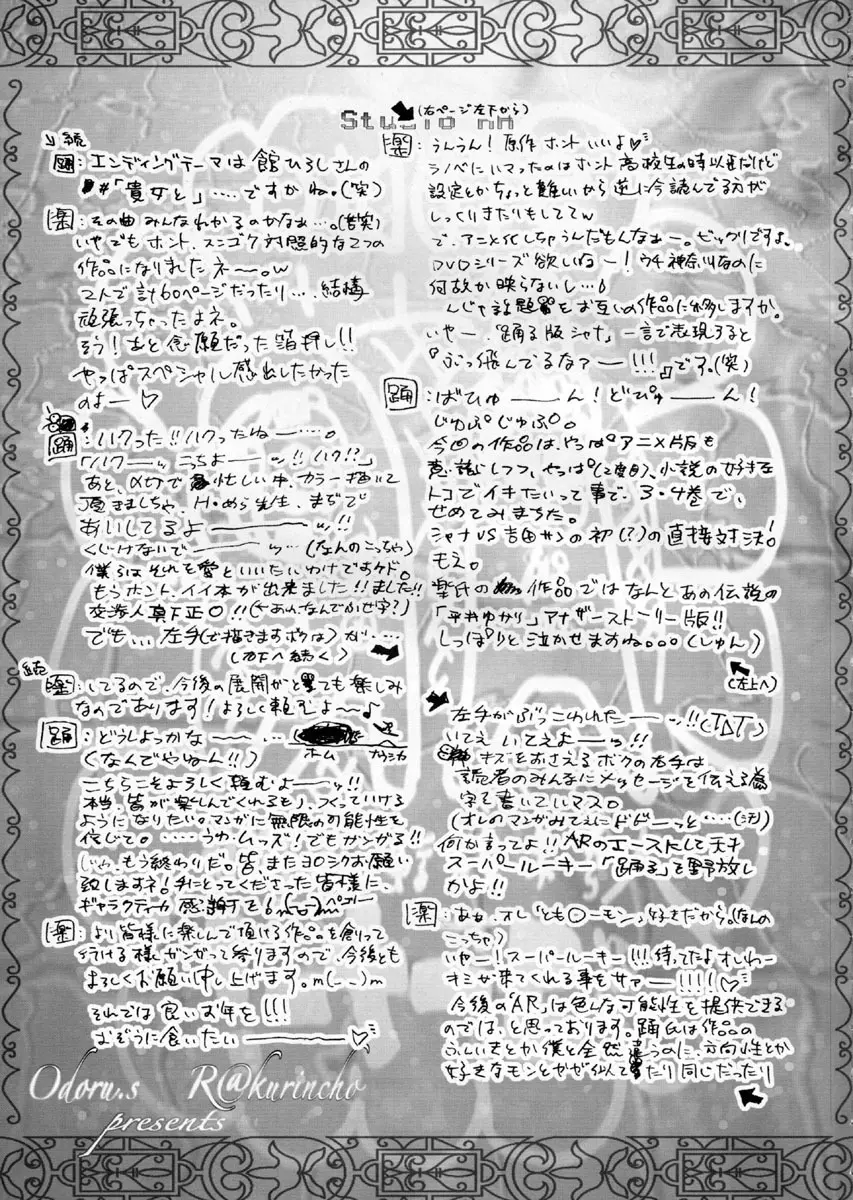 Studio
(右ページ左下から)
楽:うんうん!原作ホントいいよ♡
ラノベにハマったのはホント高校生の時以来だけど
設定とかちょっと難しいから逆に今読んでる方が
しっくりきたりもしててw
で、アニメ化しちゃうんだもんなぁー。ビックリですよ。
DVDシリーズ欲しいねー!ウチ神奈川なのに
何故か映らないし…
んじゃ話題をお互いの作品に移しますか。
いやー、「踊る版シャナ」一言で表現すると
『ぶっ飛んでるなァー!!!』です。(笑)
踊:ばひゅーん!どぴゅーん!
じゅぷじゅぷ。
今回の作品は、やっぱアニメ版も
意識しつつ、やっぱ(2度目)、小説の好きな
トコでイキたいって事で、3・4巻で、
せめてみまちた。
シャナVS吉田サンの初(?)の直接対決!
もえ。
楽氏の作品ではなんとあの伝説の
「平井ゆかり」アナザーストーリー版!!
しっぽりと泣かせますね。。。(しゅん)
(左上へ)
続
踊:エンディングテーマは舘ひろしさんの
#「貴女と」……ですかね。(笑)
楽:その曲みんなわかるのかなぁ…。(苦笑)
いやでもホント、スンゴク対照的な2つの
作品になりましたネー。w
2人で計60ページだったり…、結構
頑張っちゃったよネ。
そう!あと念願だった箔押し!!
やっぱスペシャル感出したかった
のよー♡
踊:ハクった!!ハクったねー…。
「ハクーッ こっちよーッ!! ハク!?」
あと、〆切で忙しい中、カラー描いて
頂きましちゃ、H・めら先生、まぢで
あいしてるよーッ!!
くじけないでーッ…(なんのこっちゃ)
僕らはそれを愛といいたいわけですケド。
もうホント、イイ本が出来ました!!ました!!
交渉人真下正○!!(←あれなんでかせ字?)
でも…、左手(で描きますボクは)が…
(右下へ続く)
左手がぶっこわれたーッ!!(TДT)
いてえ いてえよーッ!!
キズをおさえるボクの右手は
読者のみんなにメッセージを伝える為
字を書いていマス。
(オレのマンガみてぇにドドーっと…(汗)
何か言ってよ!!ARのエーストして天才
スーパールーキー「踊る」を野放し
かよ!!
楽:あぁ、オレ「とも○ーモン」好きだから。(なんの
こっちゃ)
いやー!スーパールーキー!!!待ってたよオレわー
キミが来てくれる事をサァー!!!!(♡
今後の「AR」は色んな可能性を提供できる
のでは、と思っております。踊氏は作品の
ふんいきとか僕と全然違うのに、方向性とか
好きなモンとかが似てたり同じだったり
続
楽:してるので、今後の展開がとても楽しみ
なのであります!よろしく頼むよ〜♪
踊:どうしよっかなー…。
(なんでやねん!!)
ホーム ナウシカ
こちらこそよろしく頼むよーッ!!
本当、皆が楽しんでくれるもノ、つくっていける
ようになりたい。マンガに無限の可能性を
信じて。……うわ、ムッズ!でもガンがる!!
じゃ、もう終わりだ。皆、またヨロシクお願い
致しますネ!手にとってくださった皆様に、
ギャラクティカ感謝Tを6m(_ _)m ペコリー
楽:より皆様に楽しんで頂ける作品を創って
行ける様ガンガって参りますので、今後とも
よろしくお願い申し上げます。m(_ _)m
それでは良いお年を!!!
おぞうに食いたいー♡
Odoru.s R@kurincho
presents